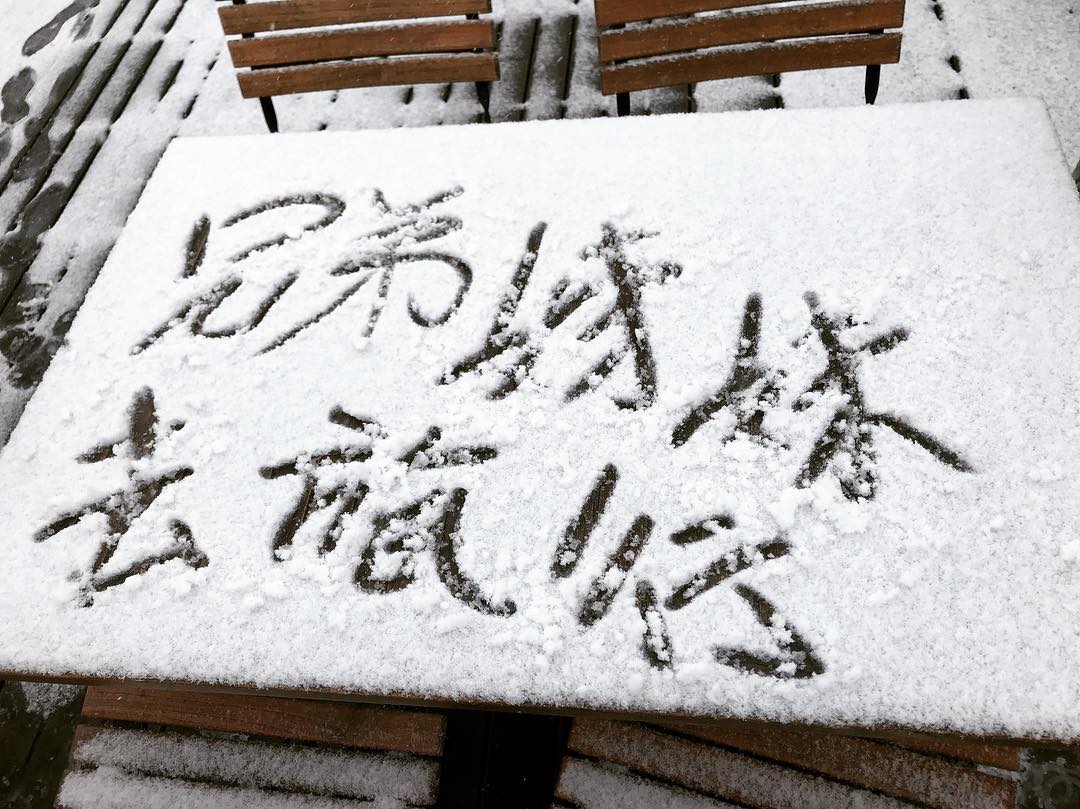 兄弟姊妹
去旅行